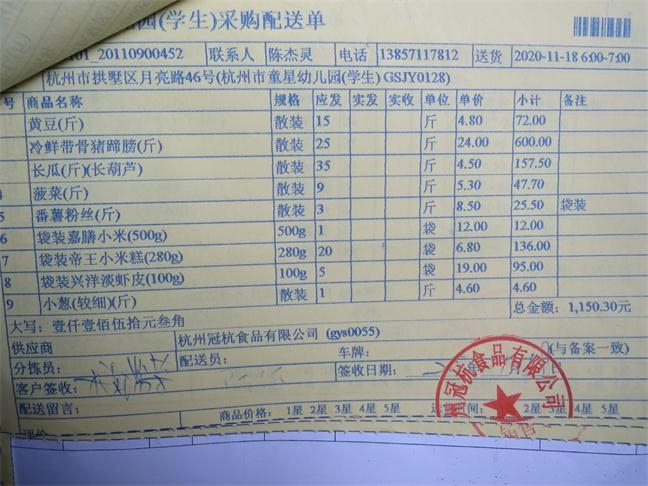 园(学生)采购配送单
01_20110900452 联系人 陈杰灵 电话 13857117812 送货 2020-11-18 6:00-7:00
杭州市拱墅区月亮路46号(杭州市童星幼儿园(学生) GSJY0128)
号 商品名称 规格 应发 实发 实收 单位 单价 小计 备注
黄豆(斤) 散装 15 斤 4.80 72.00
冷鲜带骨猪蹄膀(斤) 散装 25 斤 24.00 600.00
长瓜(斤)(长葫芦) 散装 35 斤 4.50 157.50
菠菜(斤) 散装 9 斤 5.30 47.70
5 番薯粉丝(斤) 散装 3 斤 8.50 25.50 袋装
6 袋装嘉膳小米(500g) 500g 1 袋 12.00 12.00
7 袋装帝王小米糕(280g) 280g 20 袋 6.80 136.00
8 袋装兴洋淡虾皮(100g) 100g 5 袋 19.00 95.00
9 小葱(较细)(斤) 散装 1 斤 4.60 4.60
总金额: 1,150.30元
大写: 壹仟壹佰伍拾元叁角
供应商 杭州冠杭食品有限公司 (gys0055)
分拣员: 配送员: 车牌: (与备案一致)
客户签收: 签收日期:
配送留言: 商品价格: 1星 2星 3星 4星 5星 间: 2星 3星 4星 5星
州冠杭食品有限公司